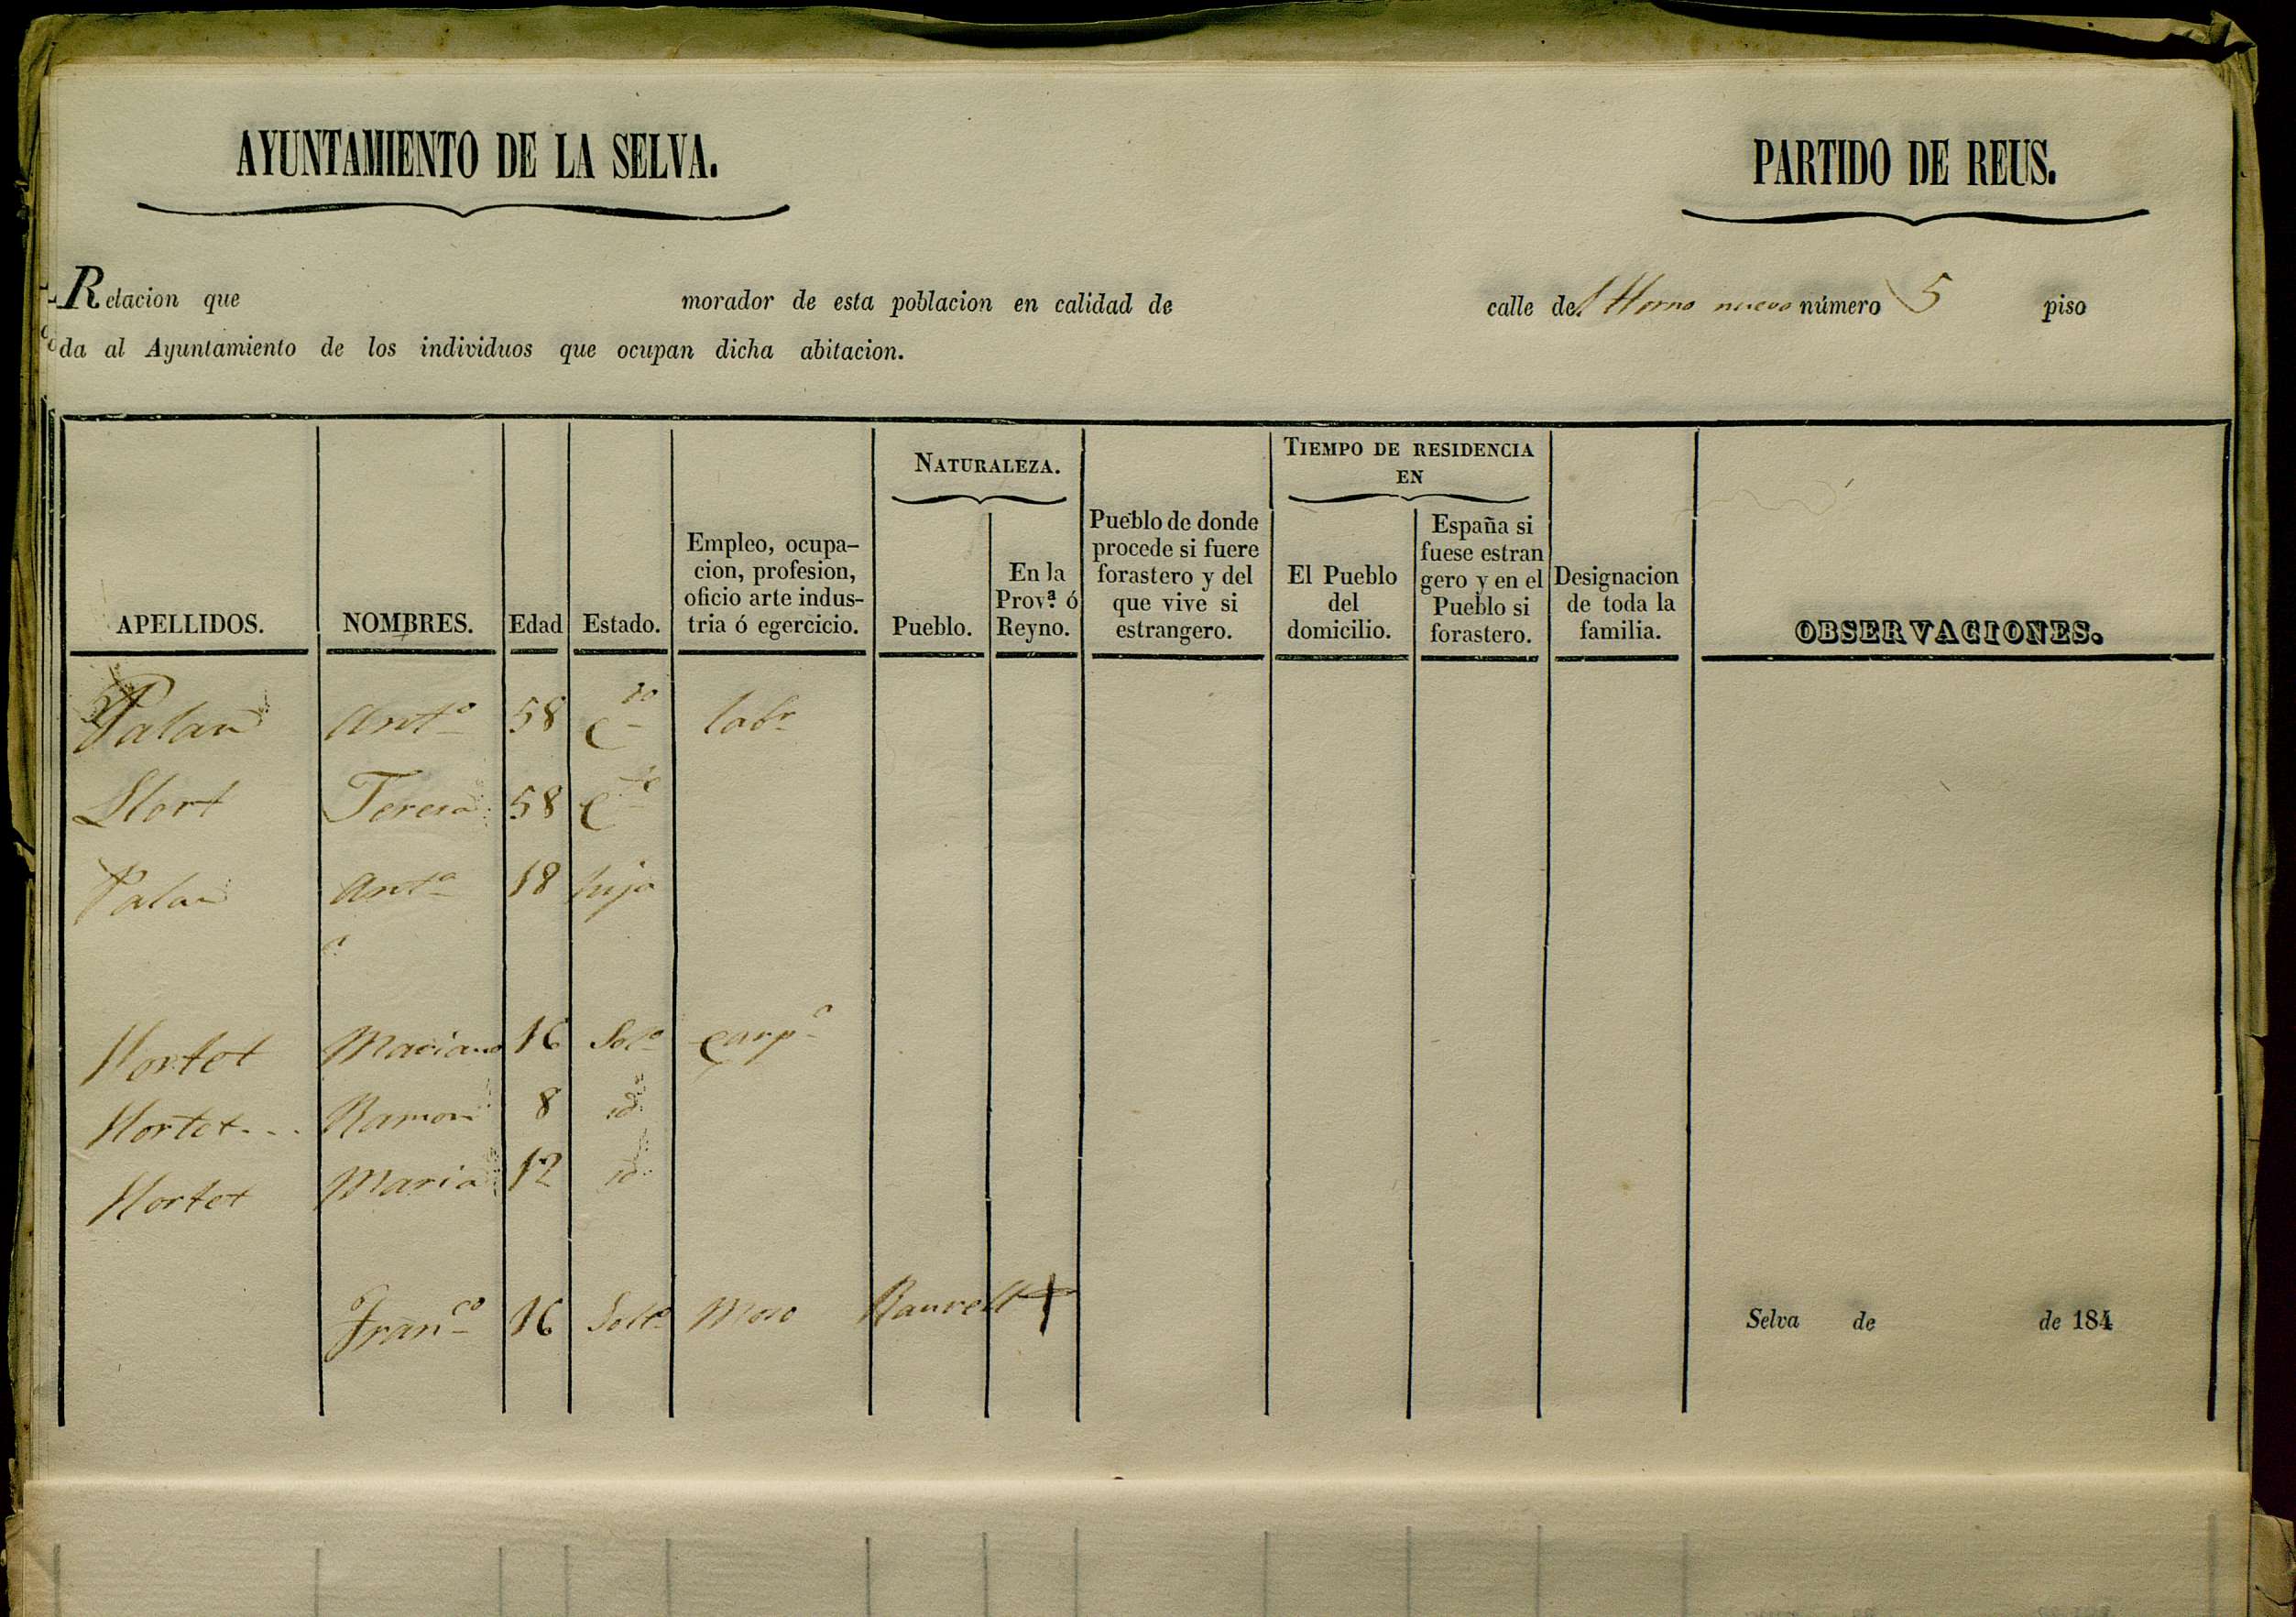 AYUNTAMIENTO DE LA SELVA. PARTIDO DE REUS.
Relacion que morador de esta poblacion en calidad de calle del Horno nuevo número 5 piso
da al Ayuntamiento de los individuos que ocupan dicha abitacion.
APELLIDOS.
NOMBRES.
Edad
Estado.
Empleo, ocupa-
cion, profesion,
oficio arte indus-
tria ó egercicio.
NATURALEZA.
Pueblo.
En la
Prov.ª ó
Reyno.
Pueblo de donde
procede si fuere
forastero y del
que vive si
estrangero.
TIEMPO DE RESIDENCIA
EN
El Pueblo
del
domicilio.
España si
fuese estran
gero y en el
Pueblo si
forastero.
Designacion
de toda la
familia.
OBSERVACIONES.
Palau Antº 58 Cdo labr
Llort Teresa 58 C
Palau Antª 18 hija
Hortet Mariano 16 Solº carpº
Hortet Ramon 8 id
Hortet Maria 12 id
Franco 16 Solº Moso Raurell
Selva de de 184